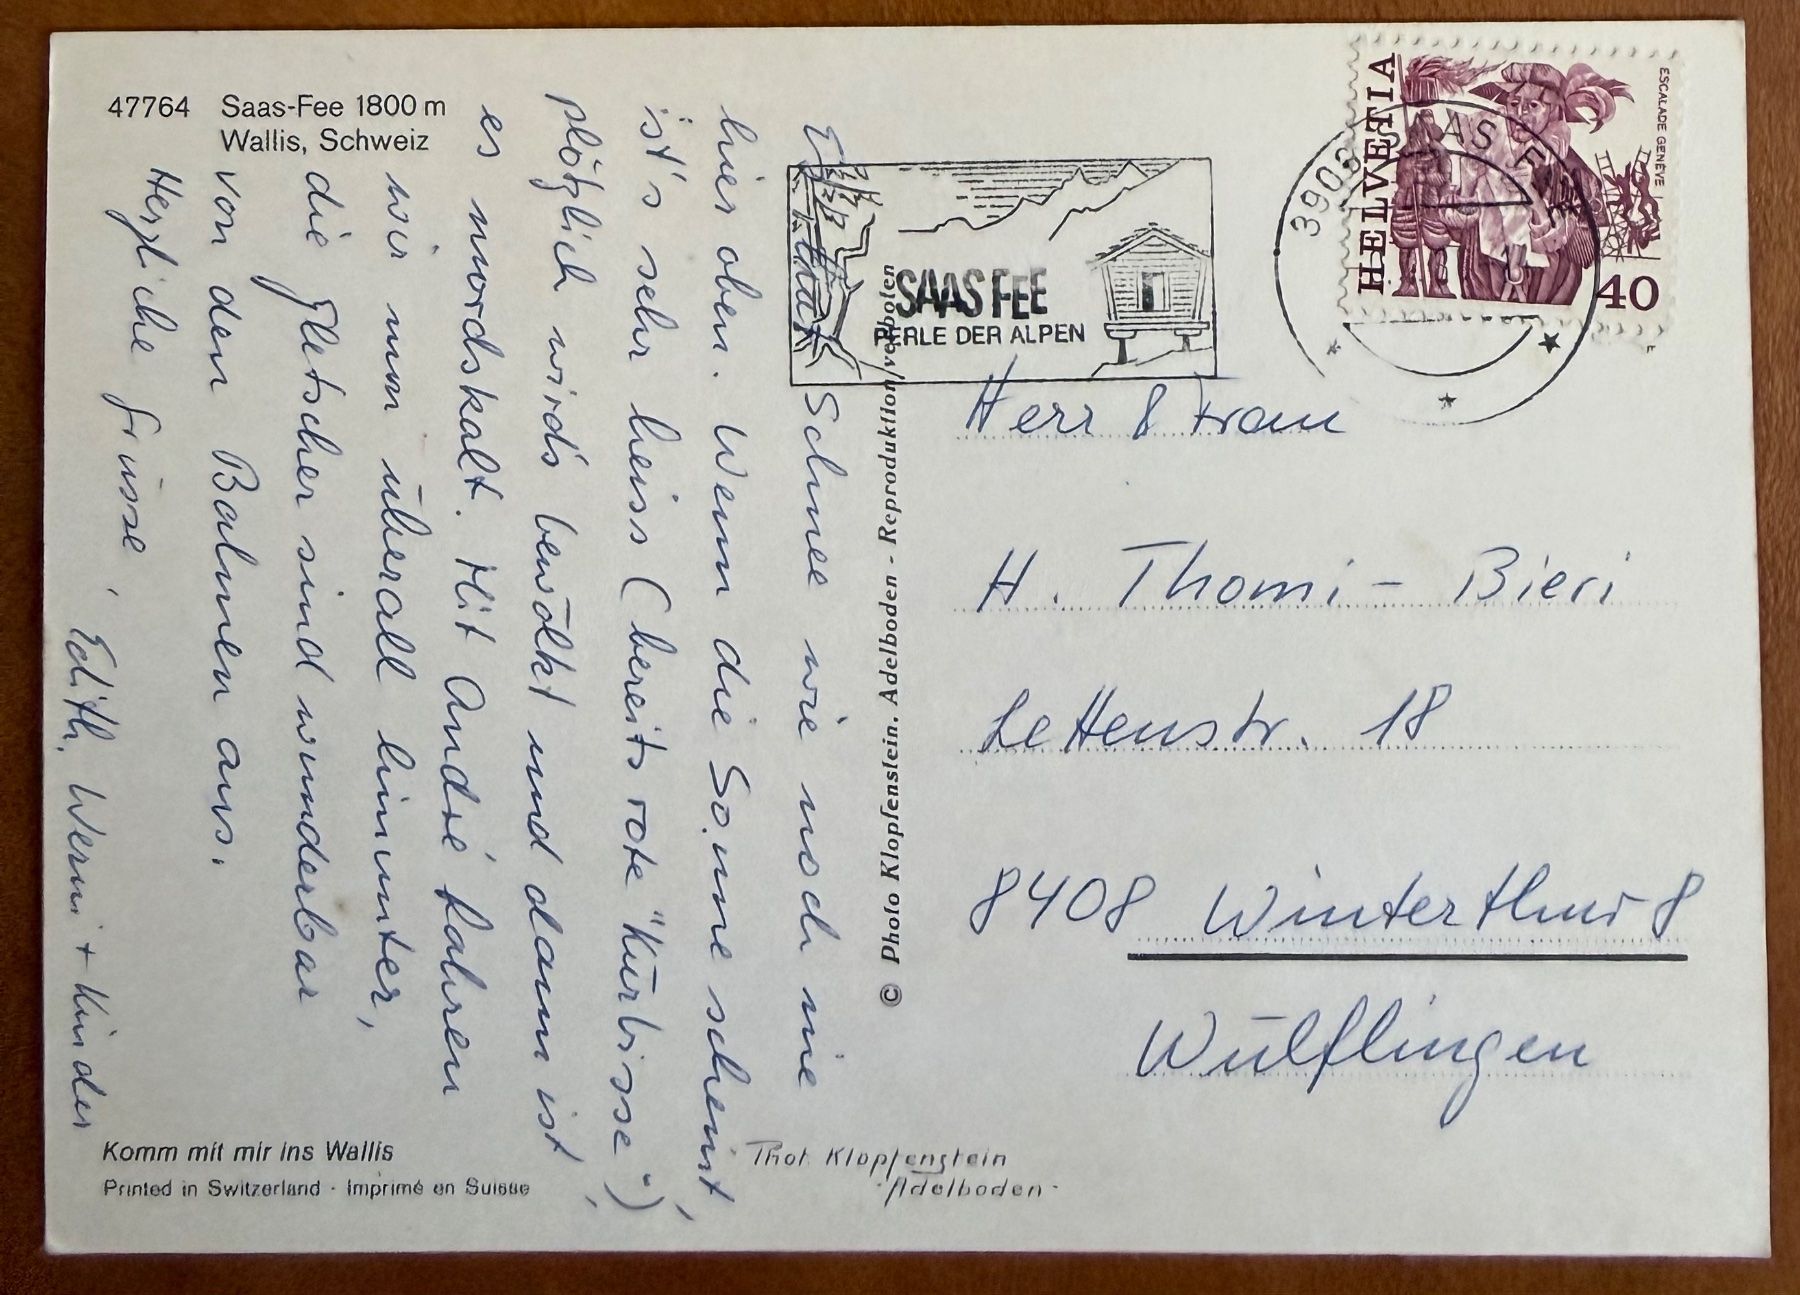 47764 Saas-Fee 1800 m
Wallis, Schweiz
Es hat Schnee wie noch nie
hier oben. Wenn die Sonne scheint,
ist's sehr heiss (bereits rote "Kürbisse"),
plötzlich wird's bewölkt und dann ist
es mordskalt. Mit André fahren
wir nun überall hinunter,
die Gletscher sind wunderbar
von den Bahnen aus.
Herzliche Grüsse,
Edith, Werni + Kinder
Komm mit mir ins Wallis
Printed in Switzerland - Imprimé en Suisse
© Photo Klopfenstein. Adelboden - Reproduktion verboten
Phot. Klopfenstein
-Adelboden-
SAAS FEE
PERLE DER ALPEN
3906 SAAS FEE
HELVETIA
ESCALADE GENÈVE
40
Herr & Frau
H. Thomi-Bieri
Lettenstr. 18
8408 Winterthur 8
Wülflingen